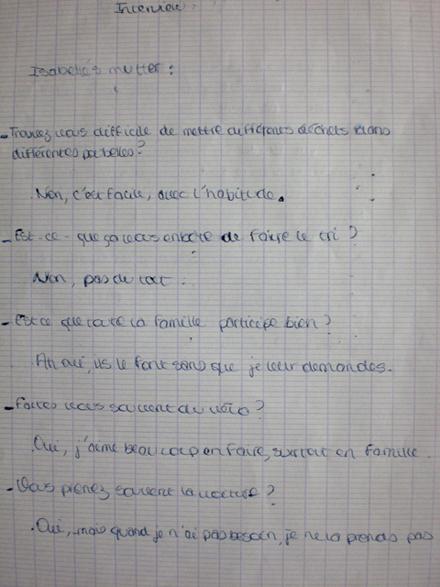 Interview :
Isabelle's mutter :
- Trouvez vous difficile de mettre différents déchets dans
différentes poubelles ?
. Non, c'est facile, avec l'habitude.
- Est-ce-que ça vous embête de faire le tri ?
Non, pas du tout.
- Est ce que toute la famille participe bien ?
Ah oui, ils le font sans que je leur demandes.
- Faites vous souvent du vélo ?
Oui, j'aime beaucoup en faire, surtout en famille.
- Vous prenez souvent la voiture ?
. Oui, mais quand je n'ai pas besoin, je ne la prends pas